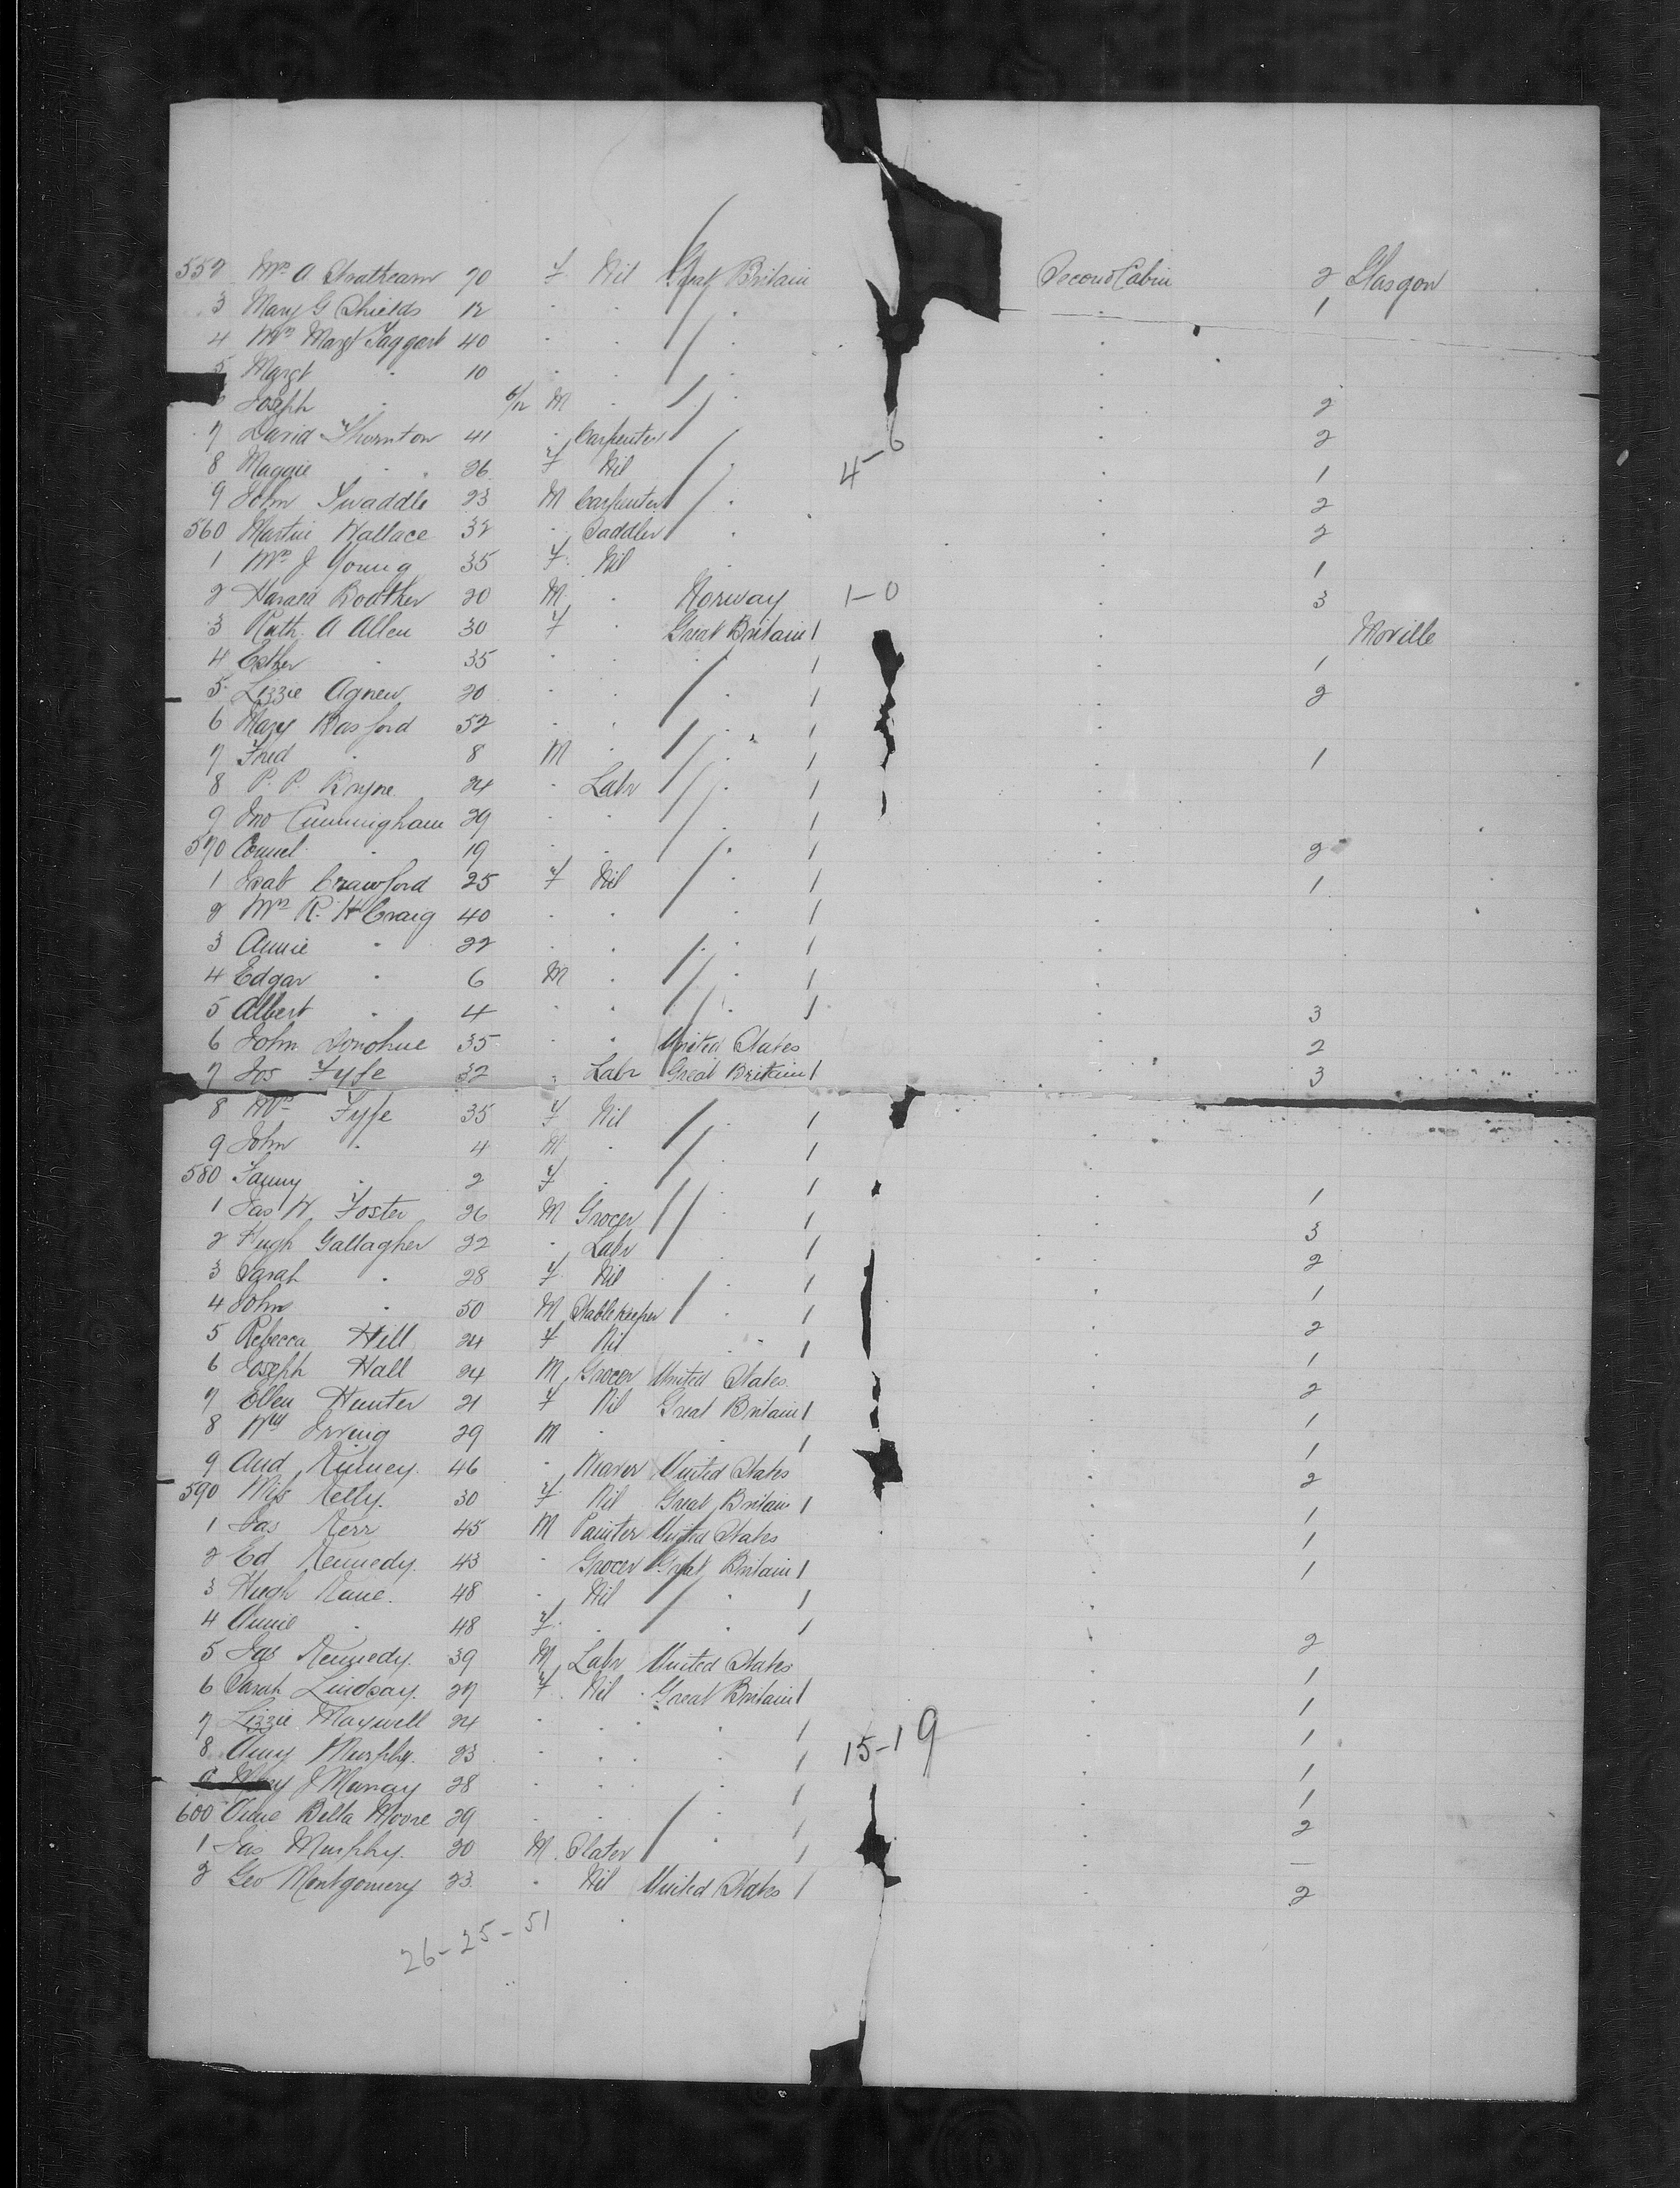 552 Mrs A Strathearn 70 F Nil Great Britain Second Cabin 2 Glasgow
3 Mary G Shields 12 " " " " 1
4 Mrs Margt Taggart 40 " " " "
5 Margt " 10 " " " "
Joseph " 6/12 M " " " 2
7 David Thornton 41 " Carpenter " 2
8 Maggie " 26 F Nil " " 1
4-6
9 John Twaddle 23 M Carpenter " " 2
560 Martin Wallace 32 " Saddler " " 2
1 Mrs J Young 35 F Nil " " 1
2 Harald 20 M " Norway 1-0 " 3
3 Kath. A Allen 30 F " Great Britain 1 " Moville
4 Esther " 35 " " " 1 " 1
5 Lizzie Agnew 20 " " " 1 " 2
6 Mary Basford 52 " " " 1 "
7 Fred " 8 M " " 1 " 1
8 P. P. Bryne 24 " Labr " 1 "
9 Jno Cunningham 29 " " " 1 "
570 " 19 " " " 1 " 2
1 Isab Crawford 25 F Nil " 1 " 1
2 Mrs R. H Craig 40 " " " 1 "
3 Annie " 22 " " " 1 "
4 Edgar " 6 M " " 1 "
5 Albert " 4 " " " 1 " 3
6 John Donohue 35 " " United States " 2
7 Jos Fyfe 32 " Labr Great Britain 1 " 3
8 Mrs Fyfe 35 F Nil " 1
9 John " 4 M " " 1 "
580 Fanny " 2 F " " 1 " 1
1 Jas W. Foster 26 M Grocer " 1 " 3
2 Hugh Gallagher 22 " Labr " 1 " 2
3 Sarah " 28 F Nil " 1 " 1
4 John " 50 M Stablekeeper " 1 " 2
5 Rebecca Hill 24 F Nil " 1 " 1
6 Joseph Hall 24 M Grocer United States " 2
7 Ellen Hunter 21 F Nil Great Britain 1 " 1
8 Wm Irving 29 M " " 1 " 1
9 And 46 " United States " 2
590 Miss Kelly. 30 F Nil Great Britain 1 " 1
1 Jas Kerr 45 M Painter United States " 1
2 Ed Kennedy. 43 " Grocer Great Britain 1 " 1
3 Hugh Kane. 48 " Nil " 1
4 Annie " 48 F " " 1 " 2
5 Jas Kennedy. 39 M Labr United States " 1
6 Sarah Lindsay. 27 F Nil Great Britain 1 " 1
7 Lizzie Maxwell 24 " " " 1 " 1
15-19
8 Amy Murphy. 23 " " " 1 " 1
9 J Murray 28 " " " 1 " 1
600 Annie Bella Moore 29 " " " 1 " 2
1 Jas Murphy. 20 M Slater " 1 " —
2 Geo Montgomery 23 " Nil United States 1 " 2
26-25-51